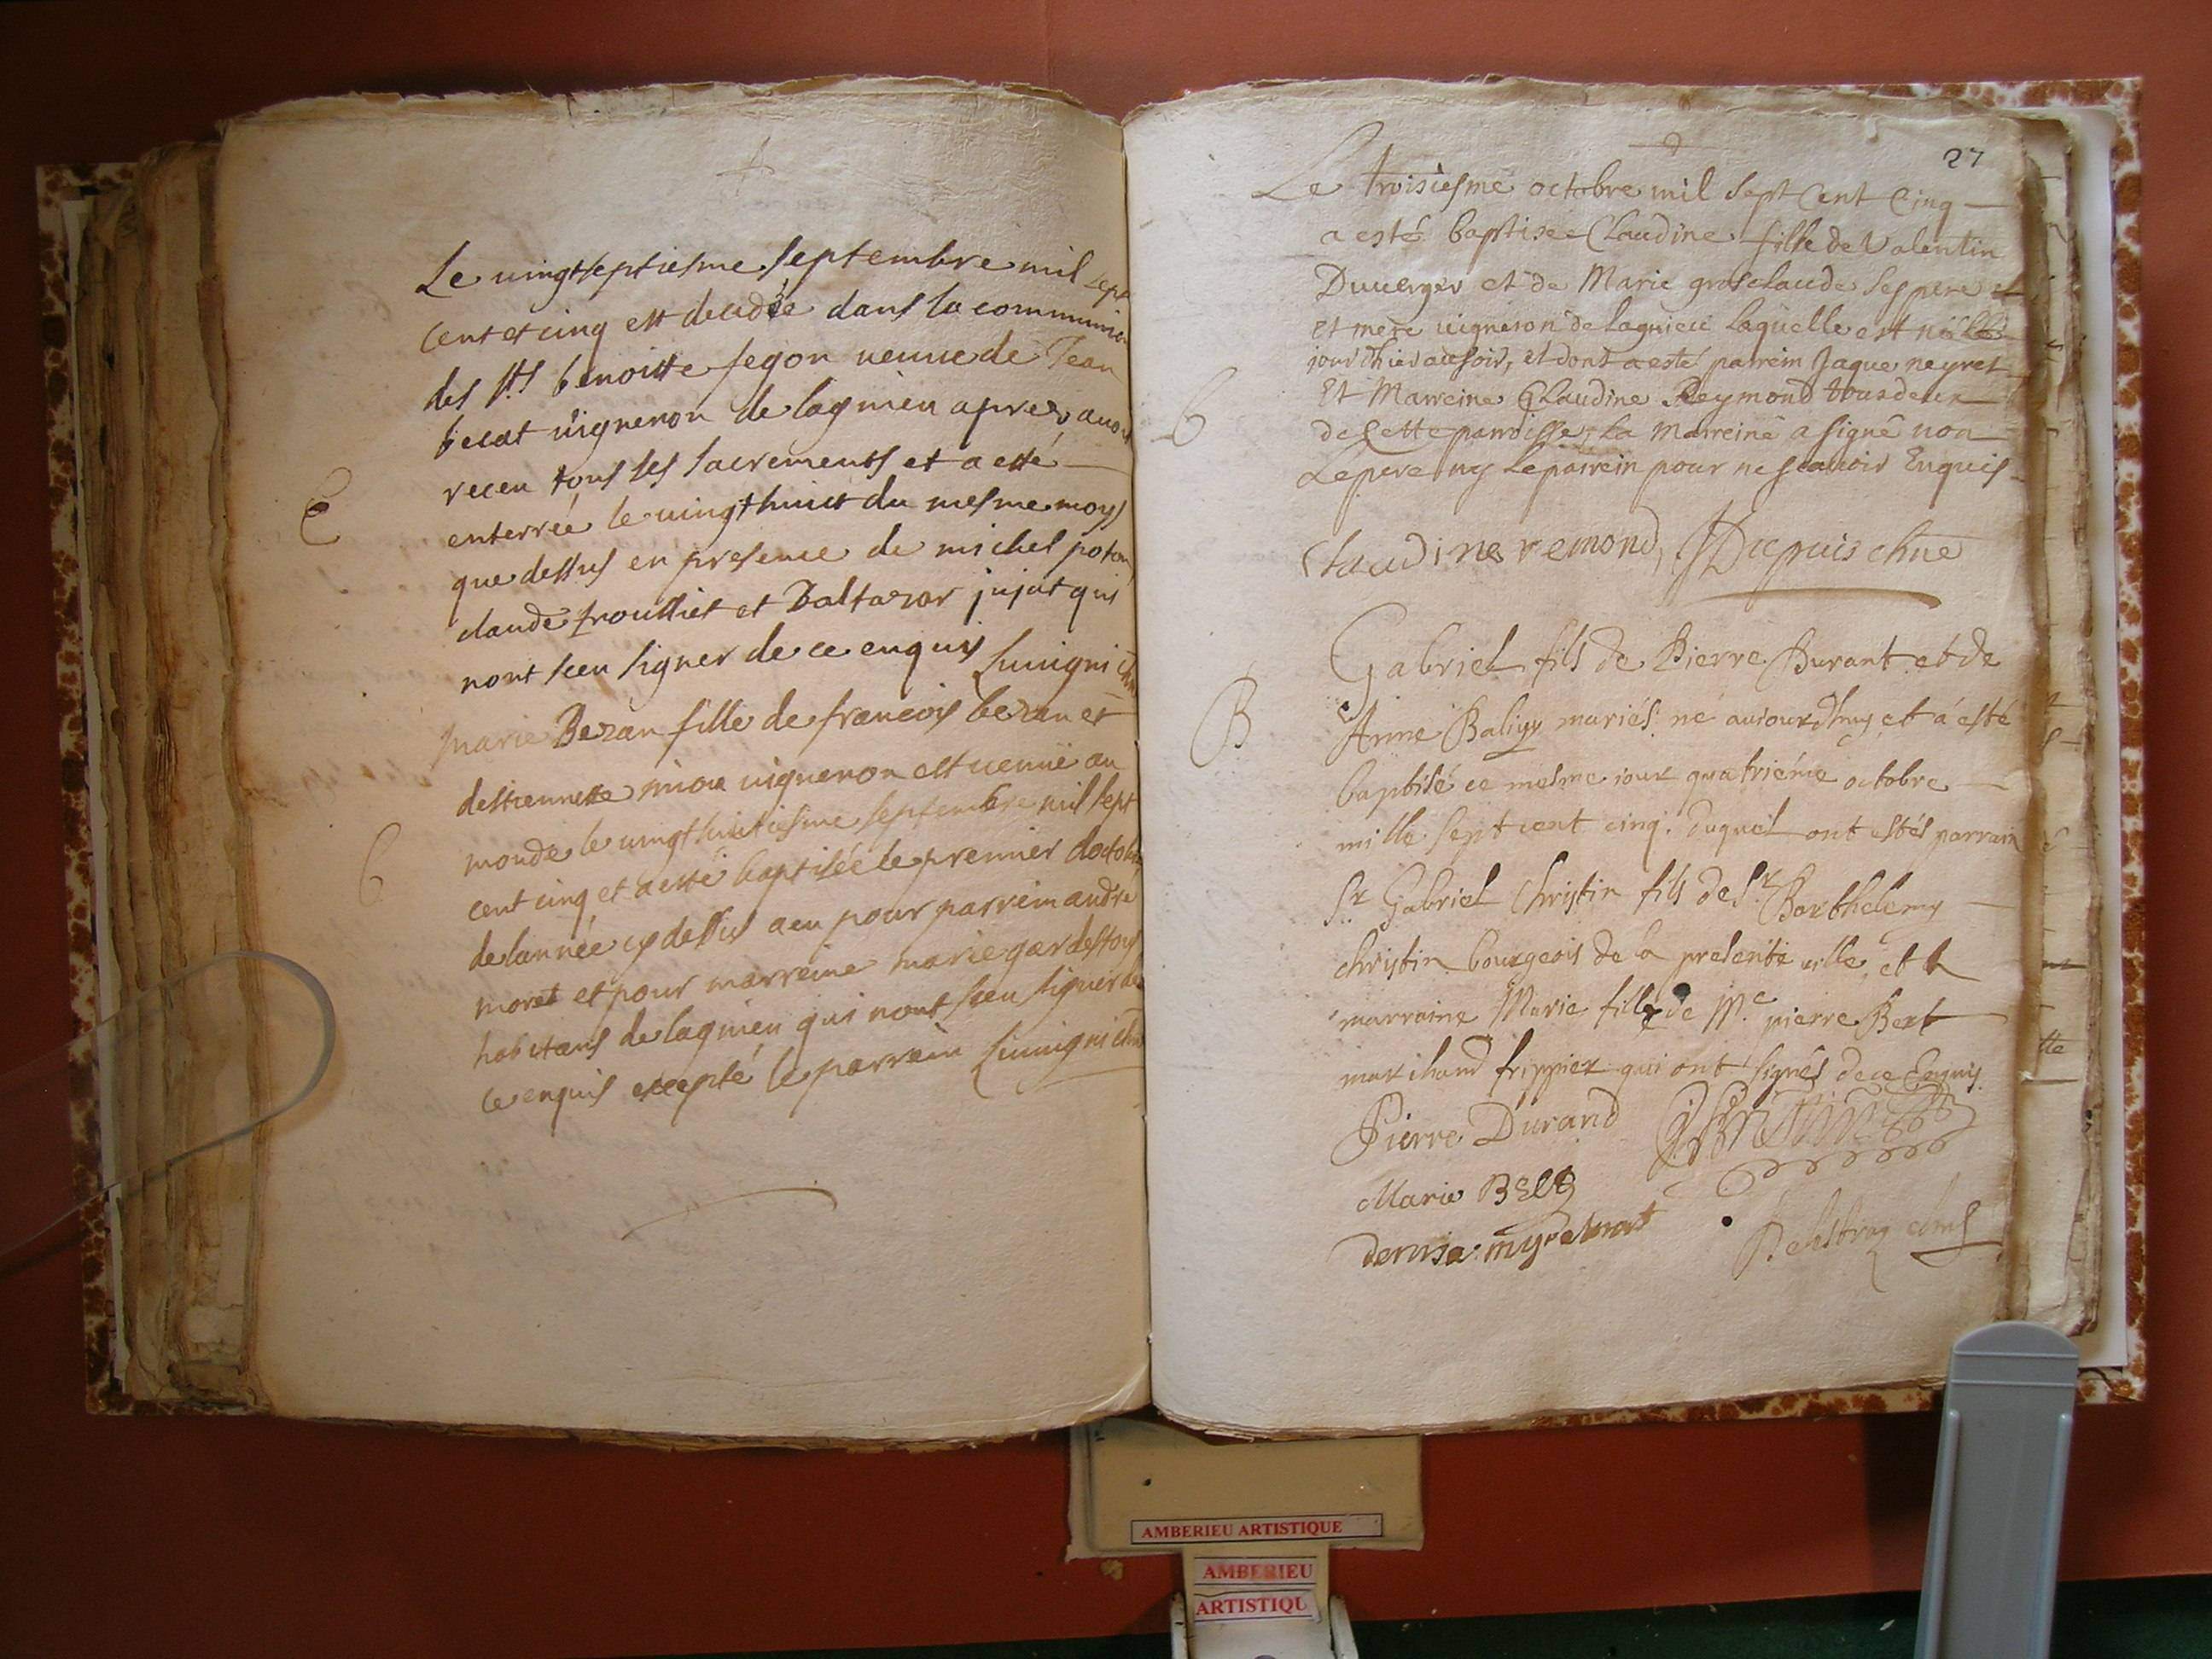 Le vingtseptiesme septembre mil sept
cent et cinq est decedée dans la communion
des Sts benoitte fegon veuve de Jean
becat vigneron de lagnieu apres avoir
receu tous ses sacrements et a esté
E
enterrée le vingthuict du mesme moys
que dessus en presence de michel
claude trouilliet et Baltazar jujat qui
nont sceu signer de ce enquis
marie Bezan fille de francois bezan et
destiennette vigneron est venüe au
monde le vingthuictiesme septembre mil sept
b
cent cinq et a esté baptisée le premier doctobre
de lannée cy dessus a eu pour parrein andré
moret et pour marreine marie gardes tous
habitans de lagnieu qui nont sceu signer de
ce enquis excepté le parrein
27
Le troisiesme octobre mil sept Cent Cinq
a esté baptisée Claudine fille de Valentin
Duverger et de Marie grosclaude ses pere et
et mere vigneron de Lagnieu laquelle est née
jour dhier au soir, et dont a esté parrein Jaque neyret
b
Et Marreine Claudine Reymond tous deux
de Cette parroisse, La Marreine a signé non
Le pere ny Le parrein pour ne scavoir Enquis
Claudine remond, JDupuis chne
Gabriel fils de Pierre Durant et de
B
Anne Baligy mariés: né aujourdhuy et a esté
baptisé ce mesme jour quatriéme octobre
mille sept cent cinq. duquel ont estés parrain
Sr Gabriel Christin fils de Sr Barthelemy
christin bourgeois de la presente ville, et la
marraine Marie fille de Me pierre Bert
marchand frippier qui ont signés de ce Enquis.
Pierre Durand Christin
Marie
denise